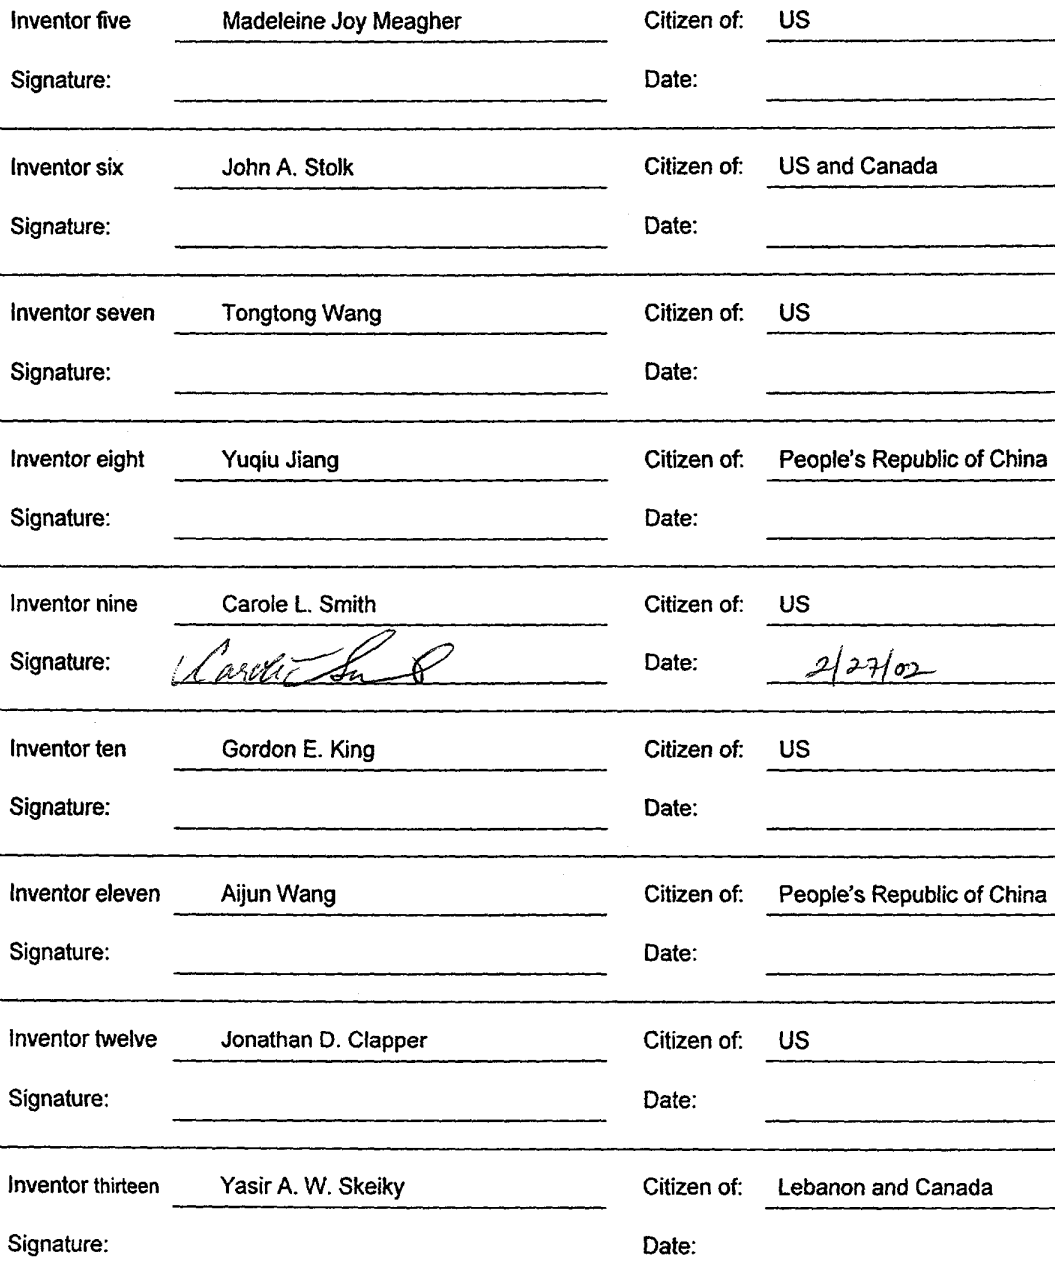 Inventor five Madeleine Joy Meagher Citizen of: US
Signature: Date:
Inventor six John A. Stolk Citizen of: US and Canada
Signature: Date:
Inventor seven Tongtong Wang Citizen of: US
Signature: Date:
Inventor eight Yuqiu Jiang Citizen of: People's Republic of China
Signature: Date:
Inventor nine Carole L. Smith Citizen of: US
Signature: Date: 2/27/02
Inventor ten Gordon E. King Citizen of: US
Signature: Date:
Inventor eleven Aijun Wang Citizen of: People's Republic of China
Signature: Date:
Inventor twelve Jonathan D. Clapper Citizen of: US
Signature: Date:
Inventor thirteen Yasir A. W. Skeiky Citizen of: Lebanon and Canada
Signature: Date: